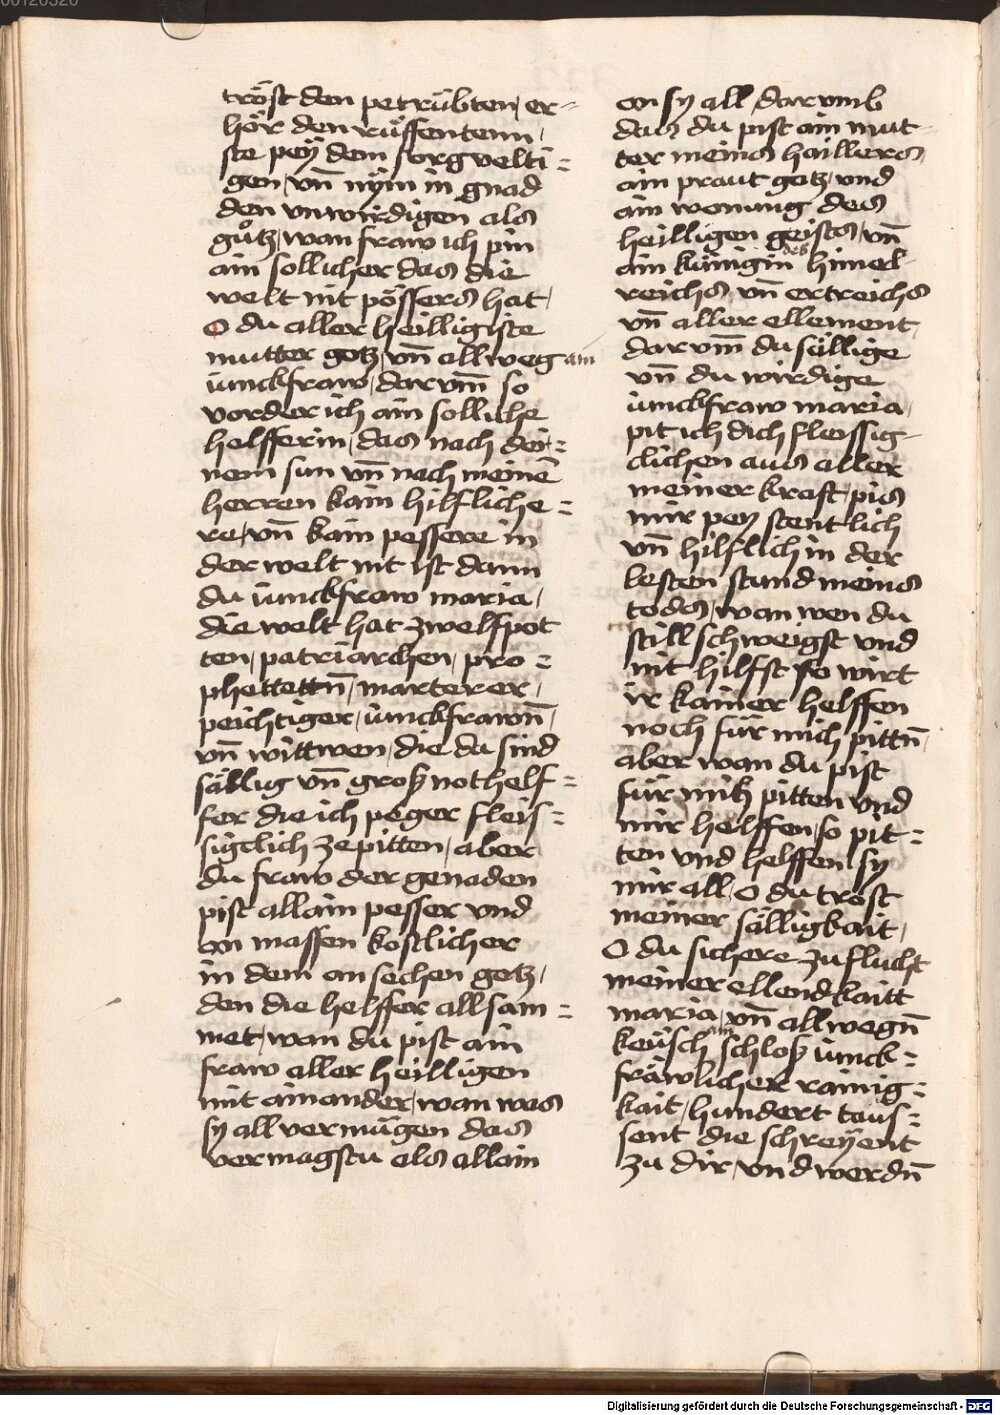 00120320
tröst den petrübten, er-
hör den rüffentenn,
ste peÿ dem sorgvelti=
gen, vn̄ nÿm in gnad
den vnwirdigen als
gůtz, wan fraw ich pin
ain sollicher das die
welt nit pössers hat,
O du aller heilligiste
mutter gotz, vn̄ allweg ain
iunckfraw, darvm̄ so
vorder ich ain solliche
helfferin, das nach dei=
nem sun vn̄ nach meinē
herren kain hilfliche=
re, vn̄ kain pessere in
der welt nit ist dann
du iunckfraw maria,
die welt hat zwelfpot
ten, patriarchen, pro=
phettettn̄, marterer,
peichtiger, iunckfrawn̄,
vn̄ wittwen, die da sind
sällig vn̄ groß nothelf=
fer die ich peger fleis=
siglich ze pitten, aber
du fraw der genaden
pist allain pesser vnd
on massen kostlicher
in dem an sechen gotz,
den die helffer allsam=
met, wan du pist ain
fraw aller heilligen
mit ainander, wan was
sy all vermügen das
vermagstu als allain
on sy all, darvmb
das du pist ain mut-
ter meins haillers,
ain praut gotz, vnd
ain wonung des
heilligen geistes, vn̄
ain künigin des himel-
reichs, vn̄ ertreichs
vn̄ aller ellement,
darvm̄ du sällige
vn̄ du wirdige
iunckfraw maria,
pit ich dich fleissig-
clichen aus aller
meiner kraft, pis
mir pey stentlich
vn̄ hilflich in der
lesten stund meins
todes, wan wen du
still schweigst vnd
nit hilfst so wirt
ir kainer helffen
noch für mich pittn̄,
aber wan du pist
für mich pitten vnd
mir helffen, so pit=
ten vnd helffen sy
mir all, O du trost
meiner sälligkait,
O du sichere zuflucht
meiner ellendkaitt
maria, vn̄ allwegn̄
keüsch ain schloß iunck=
fräwlicher rainig=
kait, hundert taus=
sent die schreÿent
zu dir, vnd werdn̄
Digitalisierung gefördert durch die Deutsche Forschungsgemeinschaft - DFG